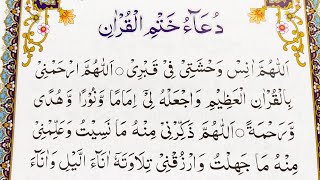 دُعَآءُ خَتْمِ الْقُرْاٰنِ
اَللّٰهُمَّ اٰنِسْ وَحْشَتِىْ فِىْ قَبْرِىْ ○ اَللّٰهُمَّ ارْحَمْنِىْ
بِالْقُرْاٰنِ الْعَظِيْمِ وَاجْعَلْهُ لِىْٓ اِمَامًا وَّنُوْرًا وَّهُدًى
وَّرَحْمَةً ○ اَللّٰهُمَّ ذَكِّرْنِىْ مِنْهُ مَا نَسِيْتُ وَعَلِّمْنِىْ
مِنْهُ مَا جَهِلْتُ وَارْزُقْنِىْ تِلَاوَتَهٗٓ اٰنَآءَ الَّيْلِ وَاٰنَآءَ